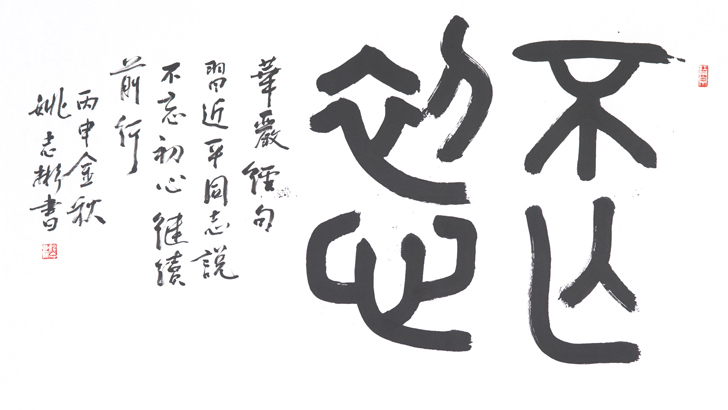 不亡
初心
華嚴經句
習近平同志說
不忘初心繼續
前行
丙申金秋
姚志彬書